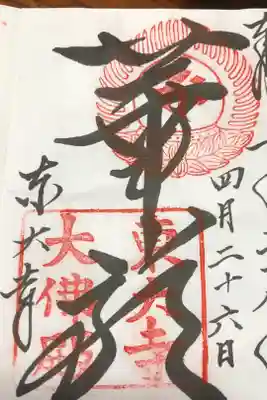 四月二十六日
華嚴
東大寺
東大寺
大佛殿